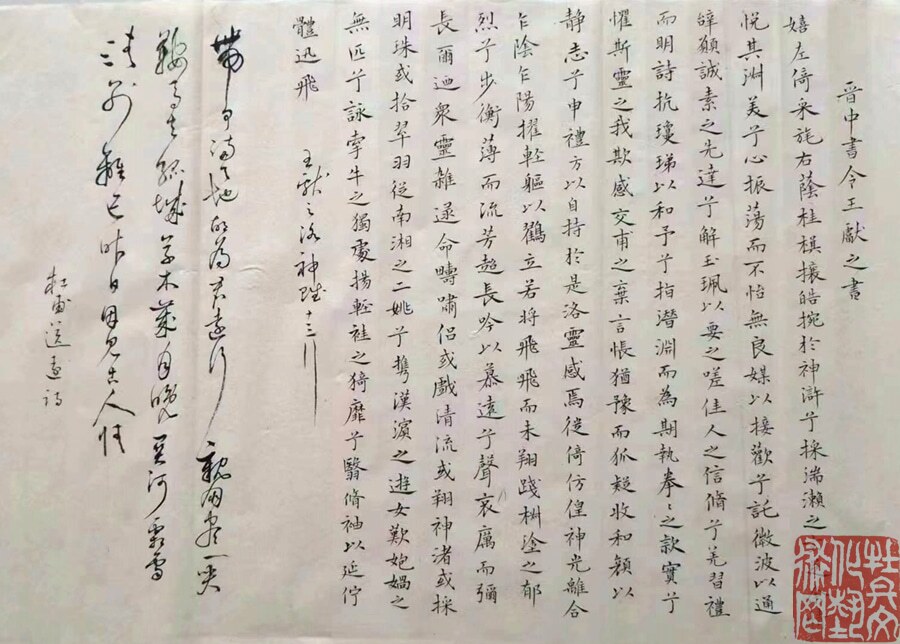 晋中書令王獻之書
嬉左倚采旄右蔭桂旗攘皓捥於神滸兮採湍瀨之
悅其淑美兮心振蕩而不怡無良媒以接歡兮託微波以通
辭願誠素之先達兮解玉珮以要之嗟佳人之信脩兮羌習禮
而明詩抗瓊珶以和予兮指潛淵而為期執拳〻之款實兮
懼斯靈之我欺感交甫之棄言悵猶豫而狐疑收和顏以
靜志兮申禮方以自持於是洛靈感焉徙倚仿偟神光離合
乍陰乍陽擢輕軀以鶴立若將飛飛而未翔踐椒塗之郁
烈兮步衡薄而流芳超長吟以慕遠兮聲哀厲而彌
長爾迺衆靈雜遝命疇嘯侶或戲清流或翔神渚或採
明珠或拾翠羽從南湘之二姚兮攜漢濱之遊女歎匏媧之
無匹兮詠牽牛之獨處揚輕袿之猗靡兮翳脩袖以延佇
體迅飛
王獻之洛神賦十三行
帶甲滿天地胡為君遠行親朋盡一哭
鞍馬去孤城草木歲月晚關河霜雪
清別離已昨日因見古人情
杜甫送遠詩